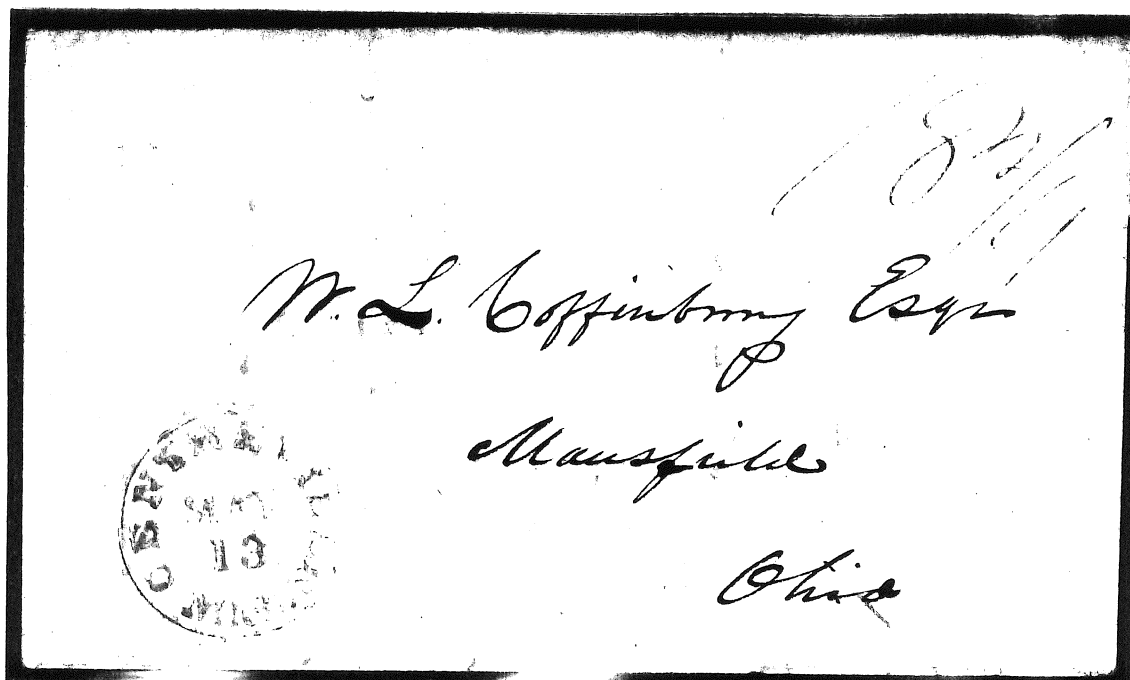 W. L. Coffinbury Esqr
Mansfield
Ohio
13